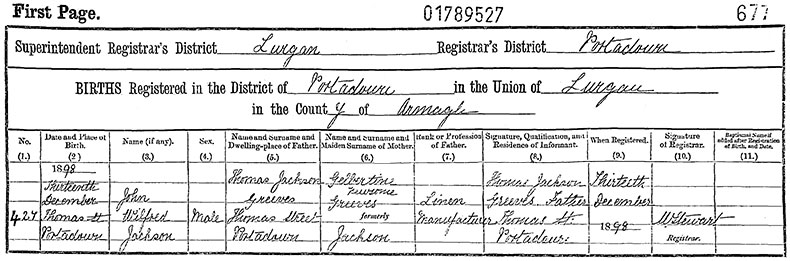 First Page. 01789527 677
Superintendent Registrar's District Lurgan Registrar's District Portadown
BIRTHS Registered in the District of Portadown in the Union of Lurgan
in the County of Armagh
No. (1.)
Date and Place of Birth. (2.)
Name (if any). (3.)
Sex. (4.)
Name and Surname and Dwelling-place of Father. (5.)
Name and Surname and Maiden Surname of Mother. (6.)
Rank or Profession of Father. (7.)
Signature, Qualification, and Residence of Informant. (8.)
When Registered. (9.)
Signature of Registrar. (10.)
Baptismal Name if added after Registration of Birth, and Date. (11.)
427
1898
Thirteenth
December
Thomas St
Portadown
John
Wilfred
Jackson
Male
Thomas Jackson
Greeves
Thomas Street
Portadown
Newsome
Greeves
formerly
Jackson
Linen
Manufacturer
Thomas Jackson
Greeves Father
Thomas St.
Portadown
Thirteeth
December
1898
W Stewart
Registrar.